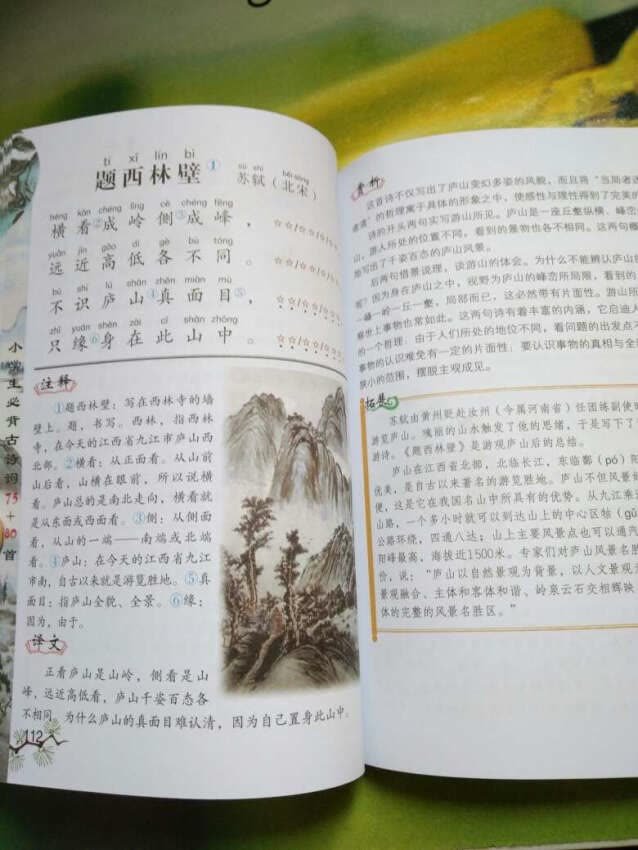 tí xī lín bì
题西林壁①
sū shì běi sòng
苏轼(北宋)
héng kàn chéng lǐng cè chéng fēng
横看②成岭侧③成峰,
yuǎn jìn gāo dī gè bù tóng
远近高低各不同。
bù shí lú shān zhēn miàn mù
不识庐山④真面目⑤,
zhǐ yuán shēn zài cǐ shān zhōng
只缘⑥身在此山中。
注释
①题西林壁:写在西林寺的墙
壁上。题,书写。西林,指西林
寺,在今天的江西省九江市庐山西
北部。②横看:从正面看。从山前
山后看,山横在眼前,所以说横
看。庐山总的是南北走向,横看就
是从东面或西面看。③侧:从侧面
看,从山的一端——南端或北端
看。④庐山:在今天的江西省九江
市南,自古以来就是游览胜地。⑤真
面目:指庐山全貌、全景。⑥缘:
因为,由于。
译文
正看庐山是山岭,侧看是山
峰,远近高低看,庐山千姿百态各
不相同。为什么庐山的真面目难认清,因为自己置身此山中。
112
小学生必背古诗词75+80首
赏析
这首诗不仅写出了庐山变幻多姿的风貌,而且将“当局者迷
的哲理寓于具体的形象之中,使感性与理性得到了完美
诗的开头两句实写游山所见。庐山是一座丘壑纵横、峰峦
山,游人所处的位置不同,看到的景物也各不相同。这两句概
地写出了千姿百态的庐山风景。
后两句借景说理,谈游山的体会。为什么不能辨认庐山的
呢?因为身在庐山之中,视野为庐山的峰峦所局限,看到的
一峰一岭一丘一壑,局部而已,这必然带有片面性。游山所
察世上事物也常如此。这两句诗有着丰富的内涵,它启迪人
的一个哲理:由于人们所处的地位不同,看问题的出发点不
事物的认识难免有一定的片面性;要认识事物的真相与全
狭小的范围,摆脱主观成见。
拓展
苏轼由黄州贬赴汝州(今属河南省)任团练副使时
游览庐山。瑰丽的山水触发了他的思绪,于是写下了
游诗。《题西林壁》是游观庐山后的总结。
庐山在江西省北部,北临长江,东临鄱(pó)阳
优美,是自古以来著名的游览胜地。庐山不但风景
便,这是它在我国名山中所具有的优势。从九江乘
山路,一个多小时就可以到达山上的中心区牯(gǔ
公路环绕,四通八达;山上主要风景点也可以通汽
阳峰最高,海拔近1500米。专家们对庐山风景名胜
价,说:“庐山以自然景观为背景,以人文景观
景观融合、主体和客体和谐、岭泉云石交相辉映
体的完整的风景名胜区。”